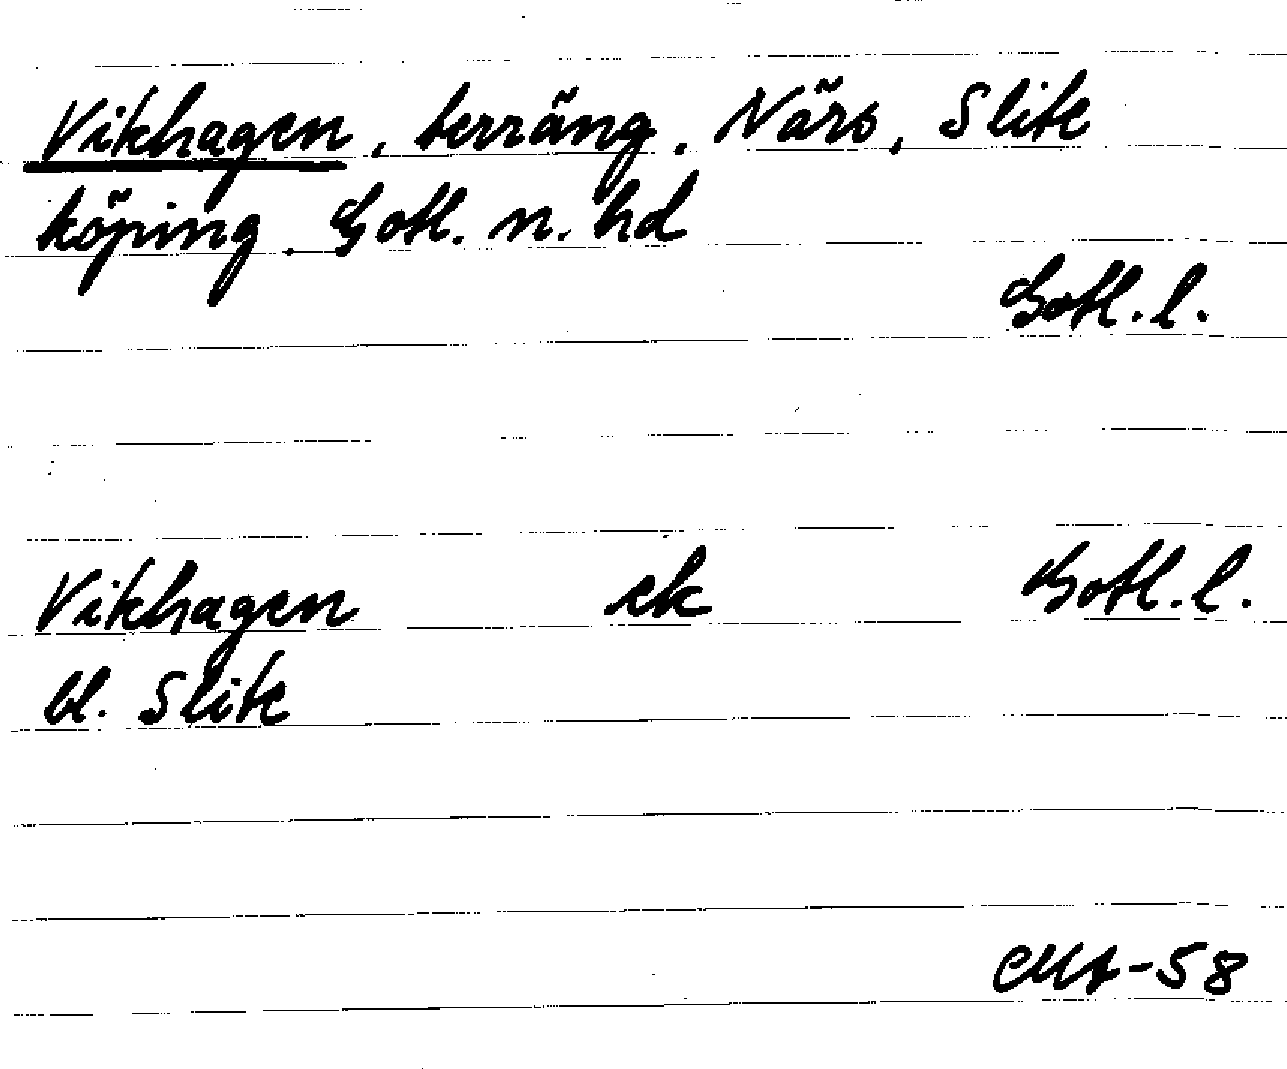 Vikhagen, terräng, Närs, Slite
köping. Gotl. n. hd
Gotl. l.
Vikhagen ek Gotl. l.
bl. Slite